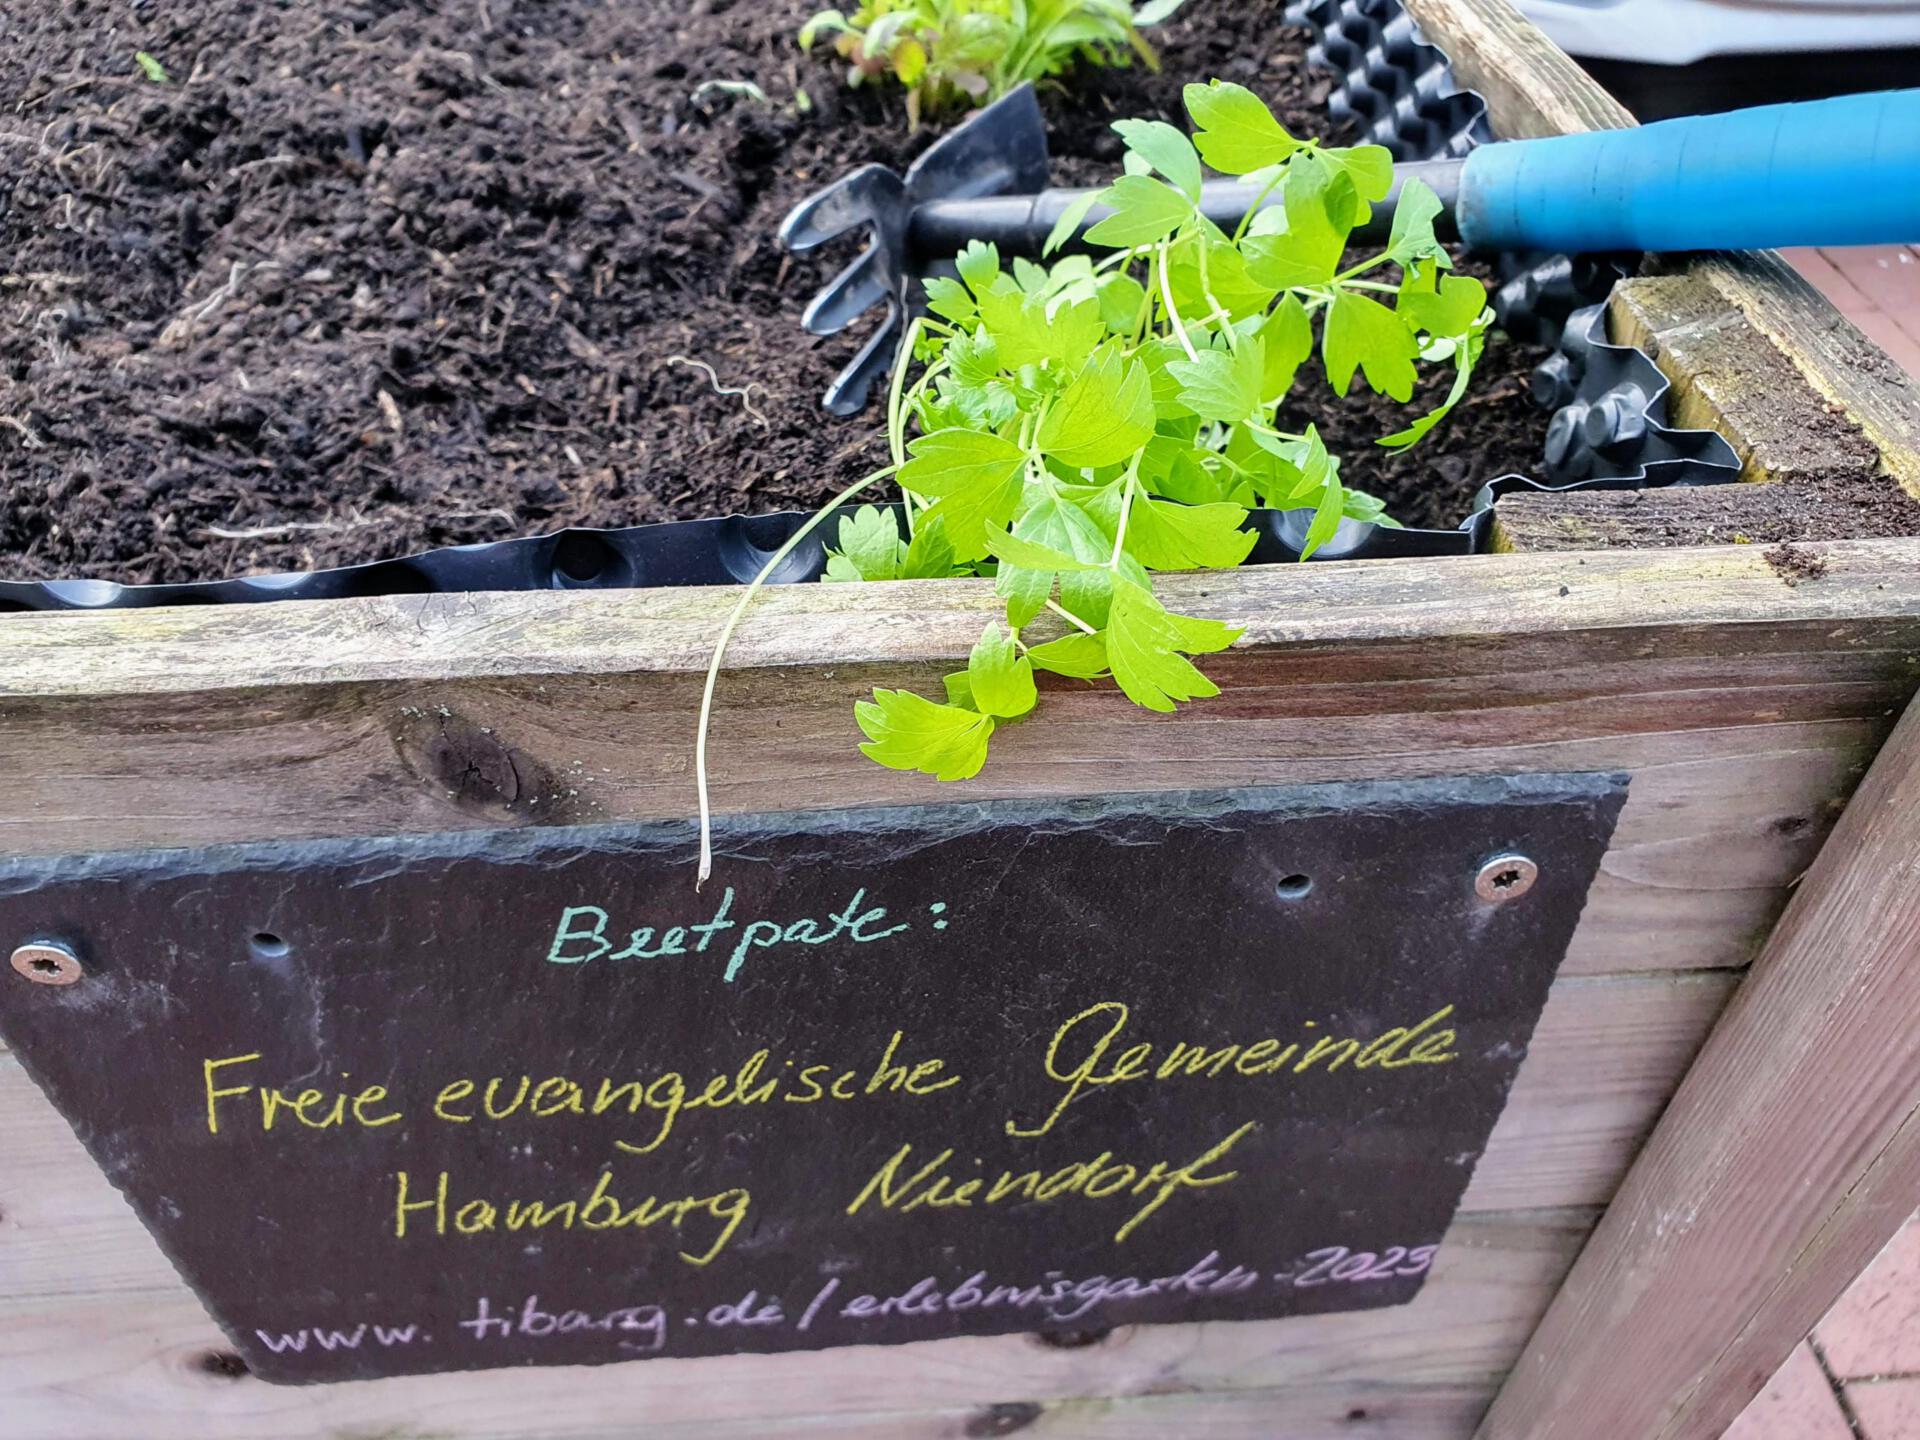 Beetpate:
Freie evangelische Gemeinde
Hamburg Niendorf
www.tibarg.de/erlebnisgarten-2023